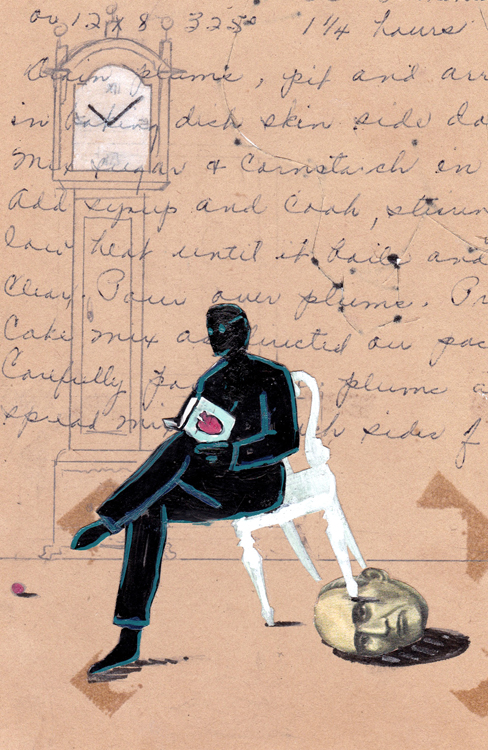 or 12 x 8 325° 1¼ hours
Drain plums, pit and
in baking dish skin side
Mix sugar & Cornstarch in
Add syrup and Cook,
low heat until it boils and
Clear. Pour over plums.
Cake mix as directed on
Carefully plums
spread sides of